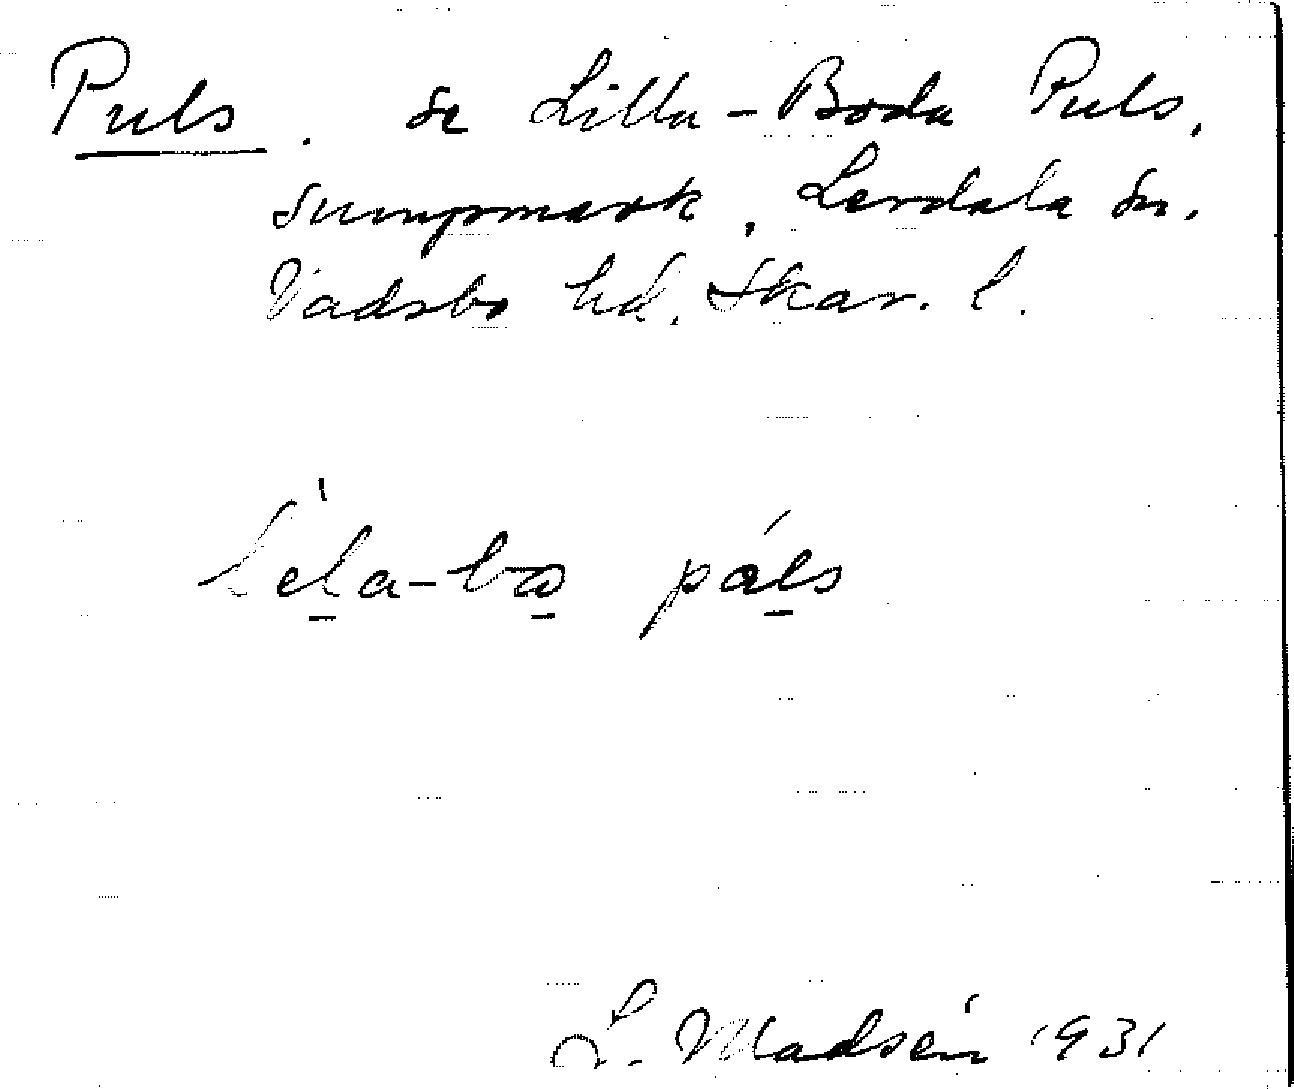 Puls. se Lilla-Boda Puls,
sumpmark, Lerdala sn.
Vadsbo hd. Skar. l.
L. Madsén 1931